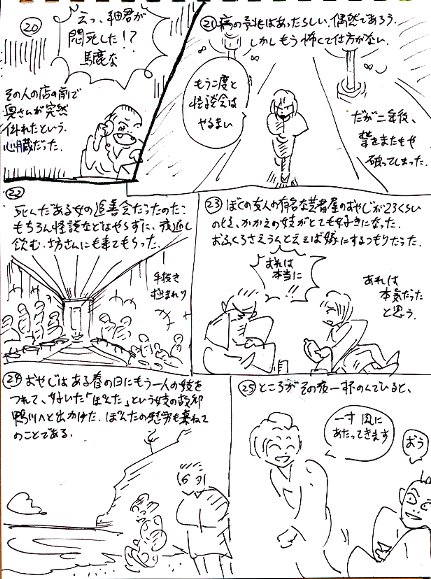 ⑳
えっ、細君が
悶死した!?
馬鹿な
その人の店の前で
奥さんが突然
倒れたという。
心臓だった。
㉑
偶然であろう。
しかしもう怖くて仕方がない。
もう二度と
怪談会は
やるまい
だが二年後、
誓をまたもや
破ってしまった。
㉒
死んだある女の追善会だったのだ
もちろん怪談などはやらずに、夜通し
飲む。坊さんにも来てもらった。
手抜き
極まれり
㉓
ぼくの友人の有名な芸者屋のおやじが23くらい
のとき、かかえの妓がとても好きになった。
おふくろさえうんといえば嫁にするつもりだった。
あれは
本当に
あれは
本気だった
と思う。
㉔
おやじはある春の日にもう一人の妓を
つれて、好いた「ぽんた」という妓の
鴨川へと出かけた。ぽんたの
のことである。
㉕
ところがその夜一杯のんでいると、
一寸風に
あたってきます
おう